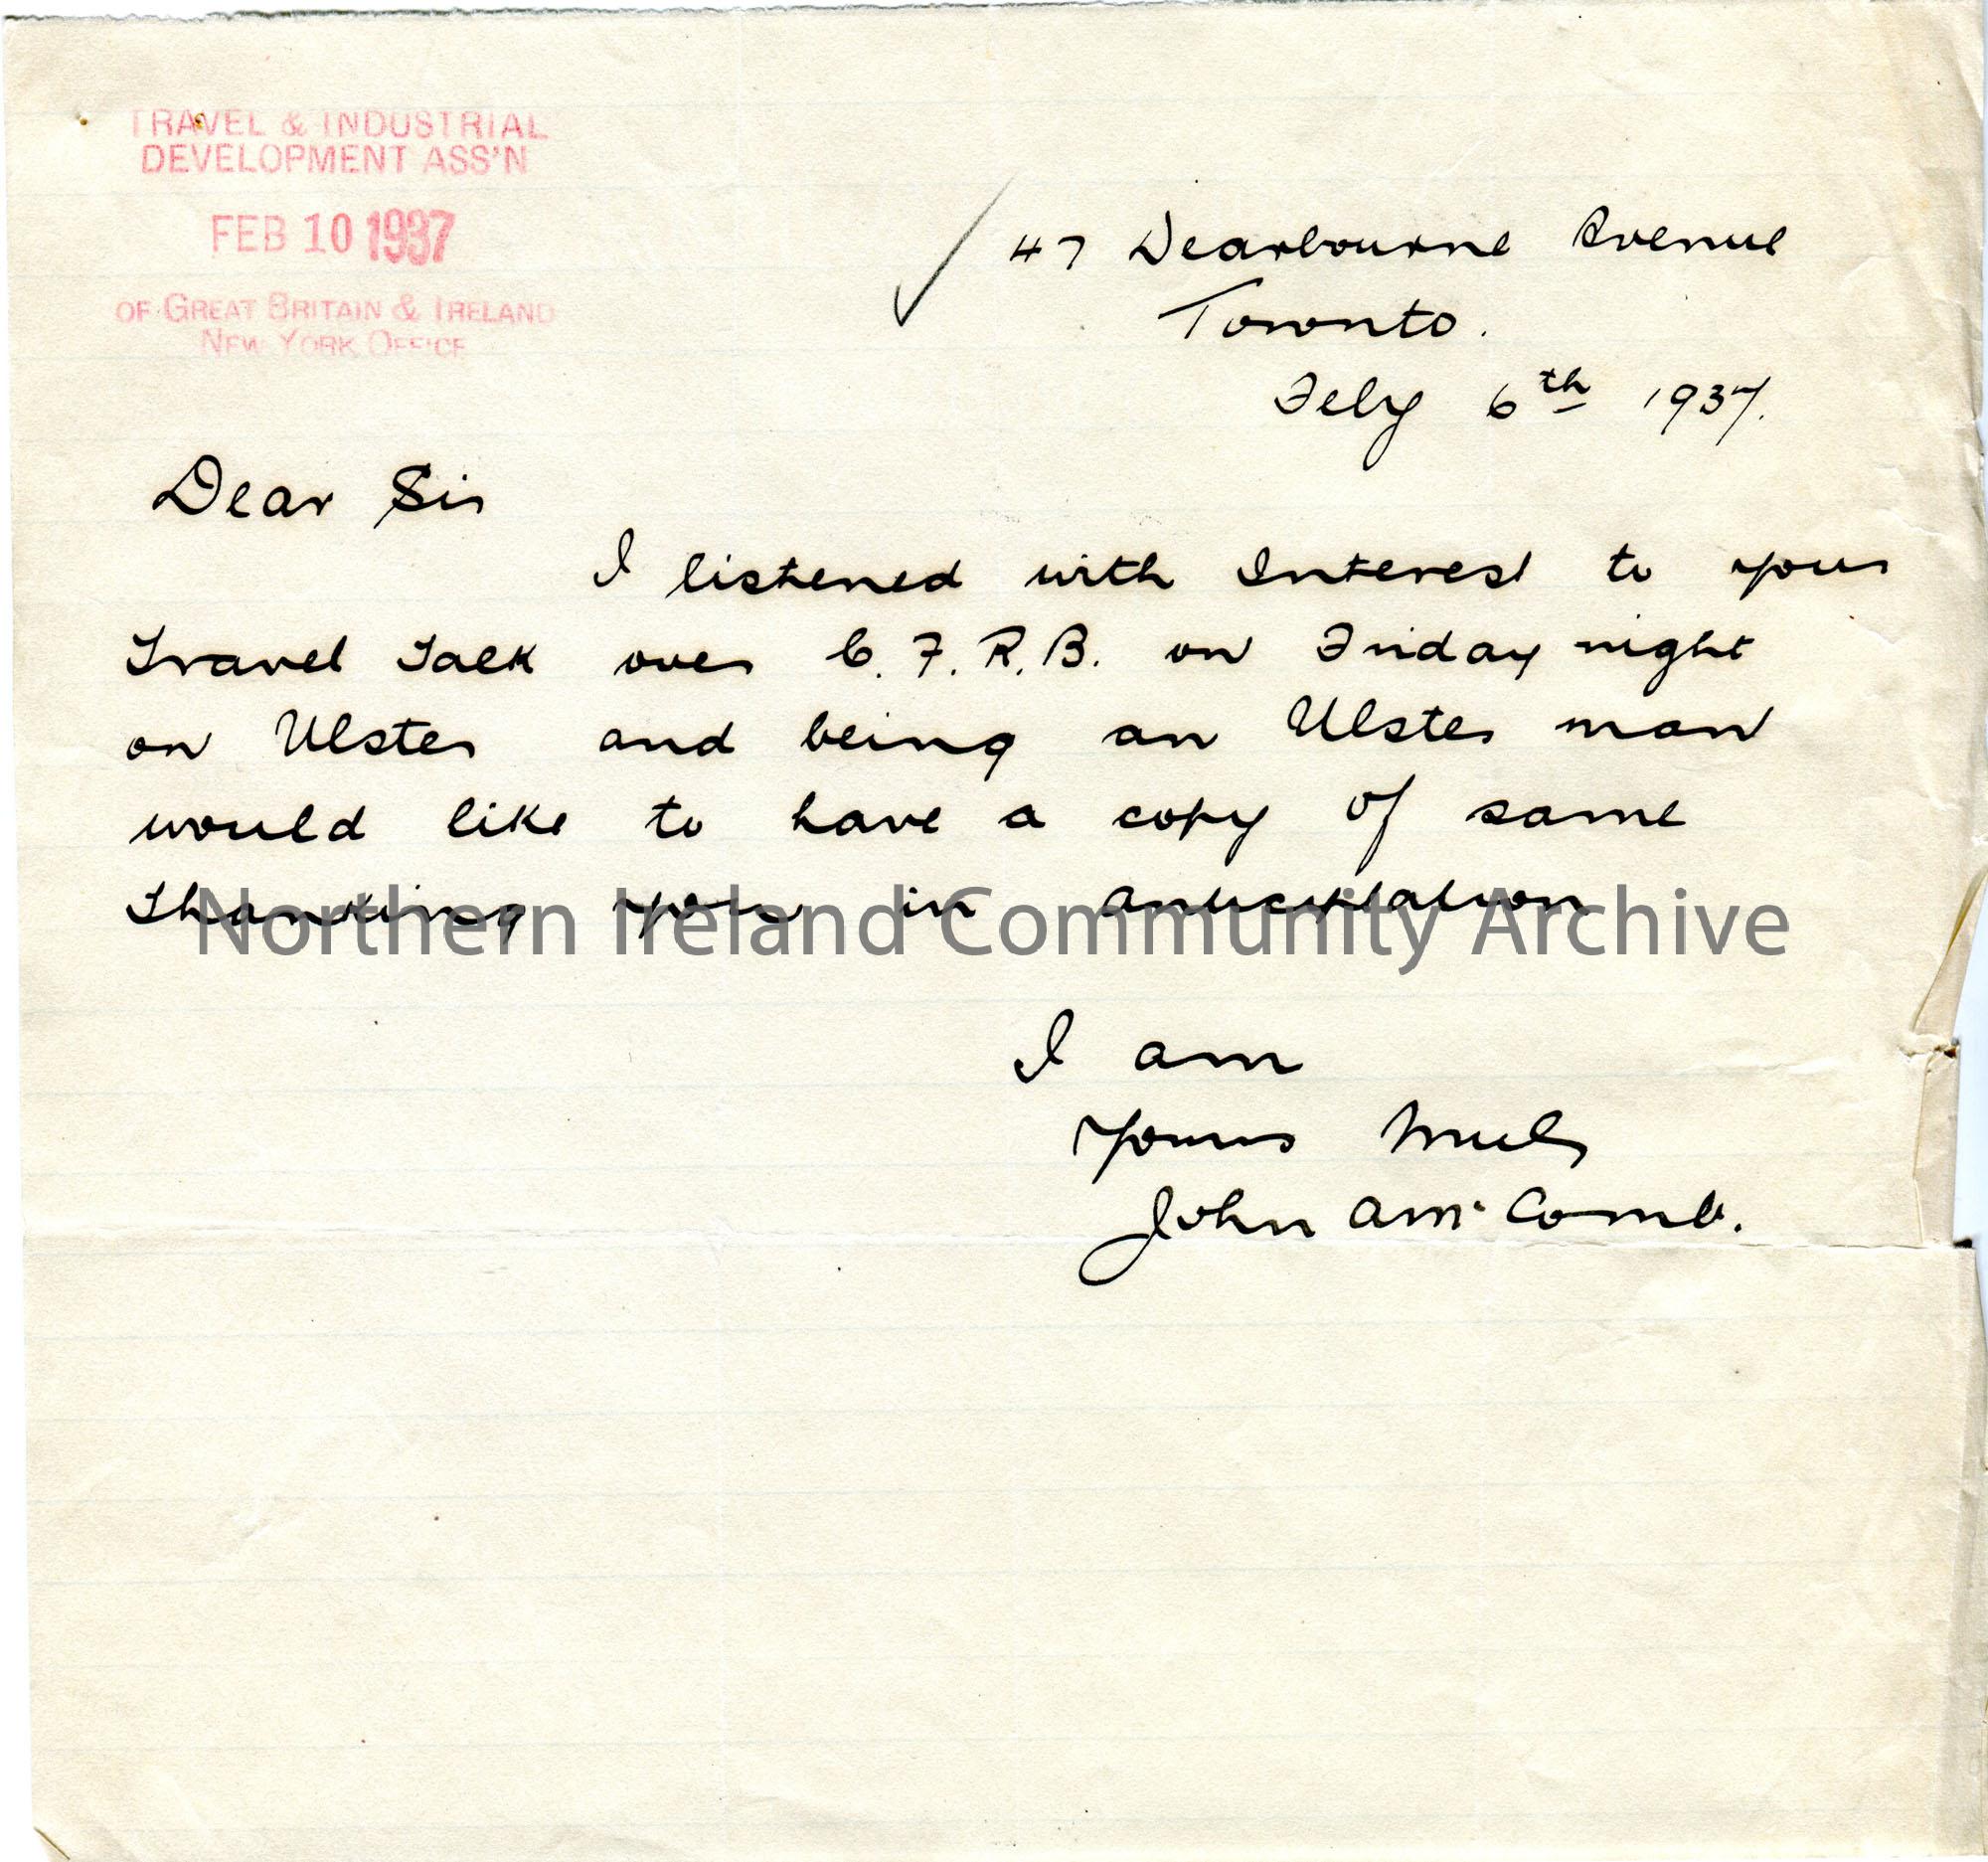 TRAVEL & INDUSTRIAL
DEVELOPMENT ASS'N
FEB 10 1937
OF GREAT BRITAIN & IRELAND
NEW YORK OFFICE
47 Dearbourne Avenue
Toronto.
Feby 6th 1937.
Dear Sir
I listened with Interest to your
Travel Talk over C.F.R.B. on Friday night
on Ulster and being an Ulster man
would like to have a copy of same
Thanking you in anticipation
Northern Ireland Community Archive
I am
Yours Truly
John A McComb.